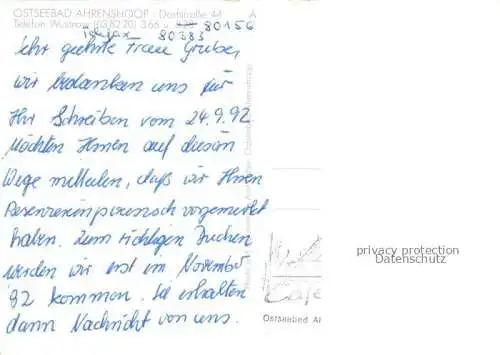 OSTSEEBAD AHRENSHOOP Dorfstraße 44 A
Telefon Wustrow (03 82 20) 3 66 u. 80156
80383
Sehr geehrte Frau Gruber,
wir bedanken uns für
Ihr Schreiben vom 24.9.92
Möchten Ihnen auf diesem
Wege mitteilen, daß wir Ihren
vorgemerkt
haben. Zum richtigen Buchen
werden wir erst im November
92 kommen. Sie erhalten
dann Nachricht von uns.
privacy protection
Datenschutz
Café
Ostseebad Ah